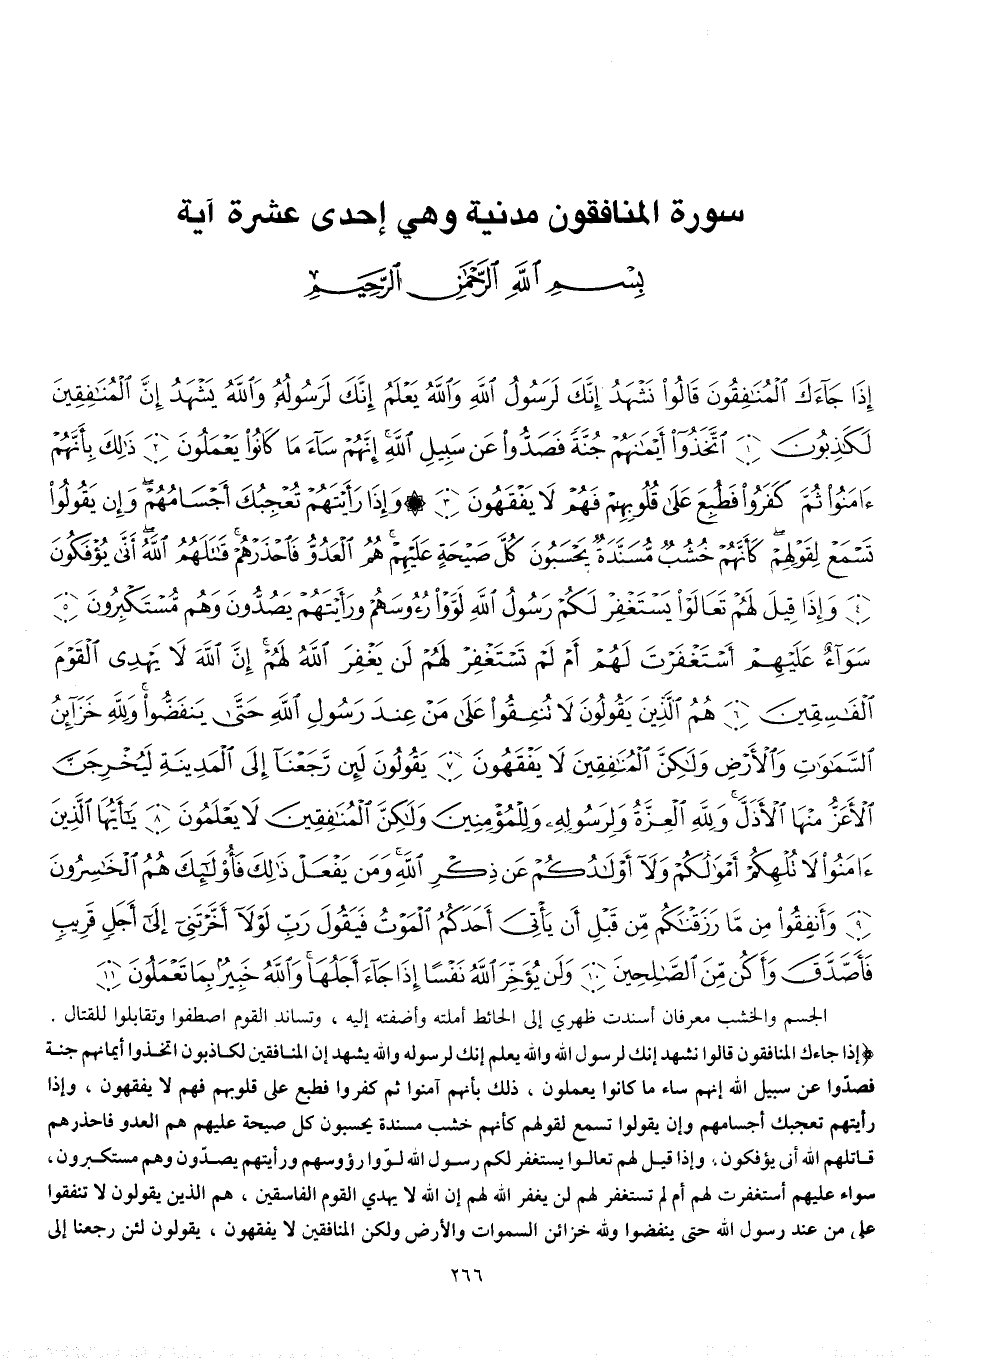 سورة المنافقون مدنية وهي إحدى عشرة آية
بِسْمِ ٱللَّهِ ٱلرَّحْمَٰنِ ٱلرَّحِيمِ
إِذَا جَآءَكَ ٱلْمُنَٰفِقُونَ قَالُوا۟ نَشْهَدُ إِنَّكَ لَرَسُولُ ٱللَّهِ وَٱللَّهُ يَعْلَمُ إِنَّكَ لَرَسُولُهُۥ وَٱللَّهُ يَشْهَدُ إِنَّ ٱلْمُنَٰفِقِينَ
لَكَٰذِبُونَ ١ ٱتَّخَذُوٓا۟ أَيْمَٰنَهُمْ جُنَّةً فَصَدُّوا۟ عَن سَبِيلِ ٱللَّهِ ۚ إِنَّهُمْ سَآءَ مَا كَانُوا۟ يَعْمَلُونَ ٢ ذَٰلِكَ بِأَنَّهُمْ
ءَامَنُوا۟ ثُمَّ كَفَرُوا۟ فَطُبِعَ عَلَىٰ قُلُوبِهِمْ فَهُمْ لَا يَفْقَهُونَ ٣ ۞ وَإِذَا رَأَيْتَهُمْ تُعْجِبُكَ أَجْسَامُهُمْ ۖ وَإِن يَقُولُوا۟
تَسْمَعْ لِقَوْلِهِمْ ۖ كَأَنَّهُمْ خُشُبٌ مُّسَنَّدَةٌ ۖ يَحْسَبُونَ كُلَّ صَيْحَةٍ عَلَيْهِمْ ۚ هُمُ ٱلْعَدُوُّ فَٱحْذَرْهُمْ ۚ قَٰتَلَهُمُ ٱللَّهُ ۖ أَنَّىٰ يُؤْفَكُونَ
٤ وَإِذَا قِيلَ لَهُمْ تَعَالَوْا۟ يَسْتَغْفِرْ لَكُمْ رَسُولُ ٱللَّهِ لَوَّوْا۟ رُءُوسَهُمْ وَرَأَيْتَهُمْ يَصُدُّونَ وَهُم مُّسْتَكْبِرُونَ ٥
سَوَآءٌ عَلَيْهِمْ أَسْتَغْفَرْتَ لَهُمْ أَمْ لَمْ تَسْتَغْفِرْ لَهُمْ لَن يَغْفِرَ ٱللَّهُ لَهُمْ ۚ إِنَّ ٱللَّهَ لَا يَهْدِى ٱلْقَوْمَ
ٱلْفَٰسِقِينَ ٦ هُمُ ٱلَّذِينَ يَقُولُونَ لَا تُنفِقُوا۟ عَلَىٰ مَنْ عِندَ رَسُولِ ٱللَّهِ حَتَّىٰ يَنفَضُّوا۟ ۗ وَلِلَّهِ خَزَآئِنُ
ٱلسَّمَٰوَٰتِ وَٱلْأَرْضِ وَلَٰكِنَّ ٱلْمُنَٰفِقِينَ لَا يَفْقَهُونَ ٧ يَقُولُونَ لَئِن رَّجَعْنَآ إِلَى ٱلْمَدِينَةِ لَيُخْرِجَنَّ
ٱلْأَعَزُّ مِنْهَا ٱلْأَذَلَّ ۚ وَلِلَّهِ ٱلْعِزَّةُ وَلِرَسُولِهِۦ وَلِلْمُؤْمِنِينَ وَلَٰكِنَّ ٱلْمُنَٰفِقِينَ لَا يَعْلَمُونَ ٨ يَٰٓأَيُّهَا ٱلَّذِينَ
ءَامَنُوا۟ لَا تُلْهِكُمْ أَمْوَٰلُكُمْ وَلَآ أَوْلَٰدُكُمْ عَن ذِكْرِ ٱللَّهِ ۚ وَمَن يَفْعَلْ ذَٰلِكَ فَأُو۟لَٰٓئِكَ هُمُ ٱلْخَٰسِرُونَ
٩ وَأَنفِقُوا۟ مِن مَّا رَزَقْنَٰكُم مِّن قَبْلِ أَن يَأْتِىَ أَحَدَكُمُ ٱلْمَوْتُ فَيَقُولَ رَبِّ لَوْلَآ أَخَّرْتَنِىٓ إِلَىٰٓ أَجَلٍ قَرِيبٍ
فَأَصَّدَّقَ وَأَكُن مِّنَ ٱلصَّٰلِحِينَ ١٠ وَلَن يُؤَخِّرَ ٱللَّهُ نَفْسًا إِذَا جَآءَ أَجَلُهَا ۚ وَٱللَّهُ خَبِيرٌۢ بِمَا تَعْمَلُونَ ١١
الجسم والخشب معرفان أسندت ظهري إلى الحائط أملته وأضفته إليه ، وتساند القوم اصطفوا وتقابلوا للقتال .
﴿إذا جاءك المنافقون قالوا نشهد إنك لرسول الله والله يعلم إنك لرسوله والله يشهد إن المنافقين لكاذبون اتخذوا أيمانهم جنة
فصدّوا عن سبيل الله إنهم ساء ما كانوا يعملون ، ذلك بأنهم آمنوا ثم كفروا فطبع على قلوبهم فهم لا يفقهون ، وإذا
رأيتهم تعجبك أجسامهم وإن يقولوا تسمع لقولهم كأنهم خشب مسندة يحسبون كل صيحة عليهم هم العدو فاحذرهم
قاتلهم الله أنى يؤفكون، وإذا قيل لهم تعالوا يستغفر لكم رسول الله لوّوا رؤوسهم ورأيتهم يصدّون وهم مستكبرون،
سواء عليهم أستغفرت لهم أم لم تستغفر لهم لن يغفر الله لهم إن الله لا يهدي القوم الفاسقين ، هم الذين يقولون لا تنفقوا
على من عند رسول الله حتى ينفضوا ولله خزائن السموات والأرض ولكن المنافقين لا يفقهون ، يقولون لئن رجعنا إلى
٢٦٦